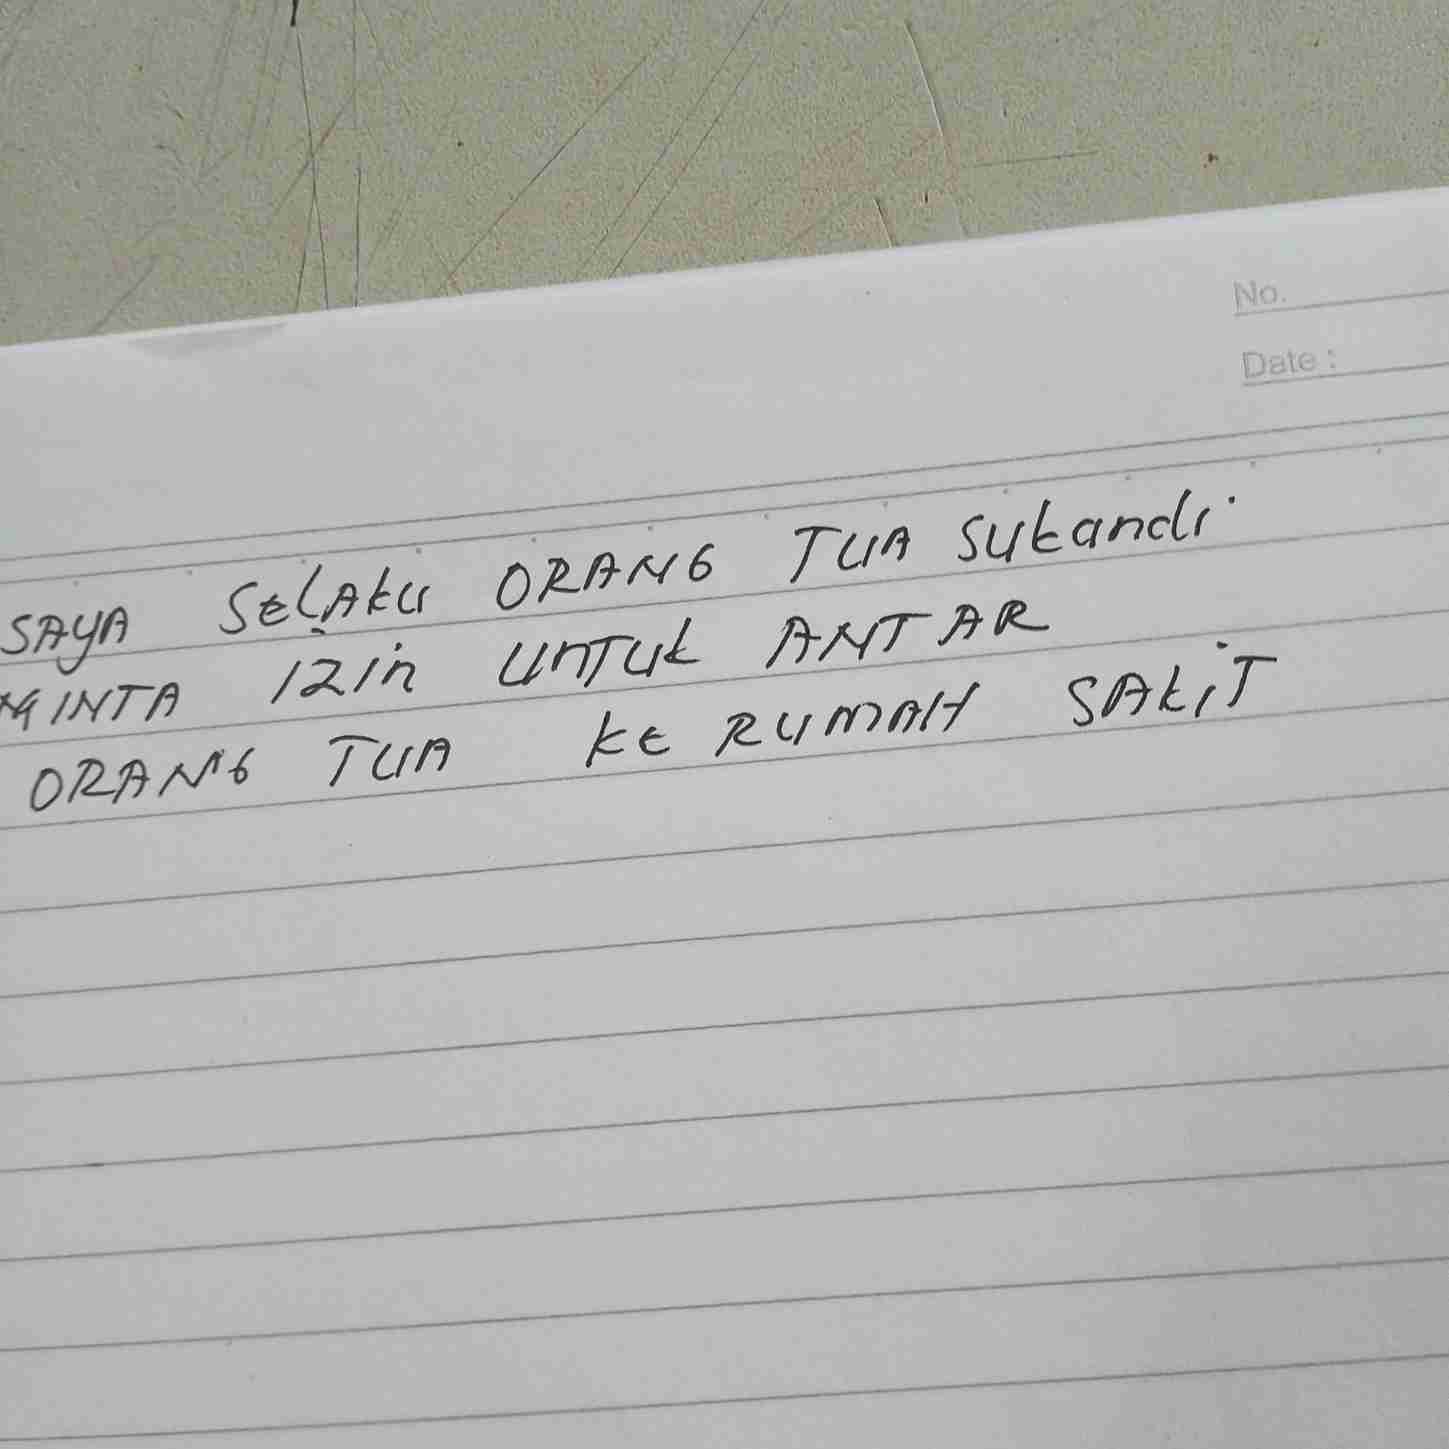 No.
Date :
SAYA SELAKU ORANG TUA Sukandi
MINTA IZIN UNTUK ANTAR
ORANG TUA KE RUMAH SAKIT